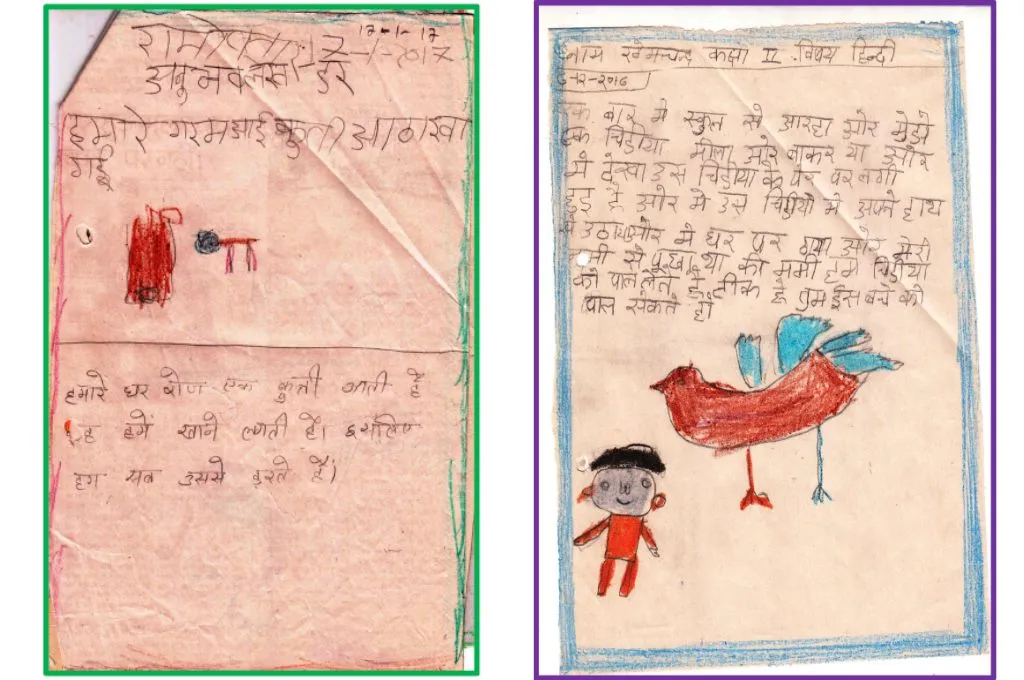 17-1-17
17-1-2017
डर
हमारे गरमआई कुती आठाखा
गई
हमारे घर रोज एक कुती आती है
हमें खाने लगती है। इसलिए
हम सब उससे डरते हैं।
नाम खेमचन्द्र कक्षा II विषय हिन्दी
एक बार मे स्कुल से आरहा और मेझे
एक चिडीया मीला और बाकर या और
मे देखा उस चिडीया के पैर पर लगी
हुइ है और मे उस चिडीया मे अपने हाथ
मे उठाया और मे घर पर गया और मेरी
ममी से पूछा था की ममी हमे चिडीया
को पाल लेते है ठीक है तुम इस बचे को
पाल सकते हो